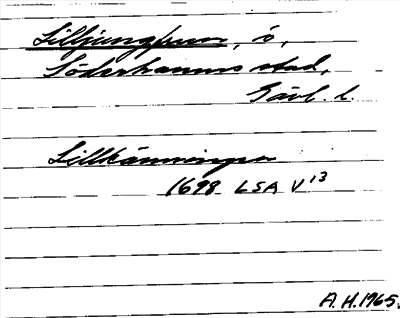 Lilljungfrun, ö,
Söderhamns stad,
Gävl. l.
Lillkänningen
1698 LSA V 13
A.H. 1965.